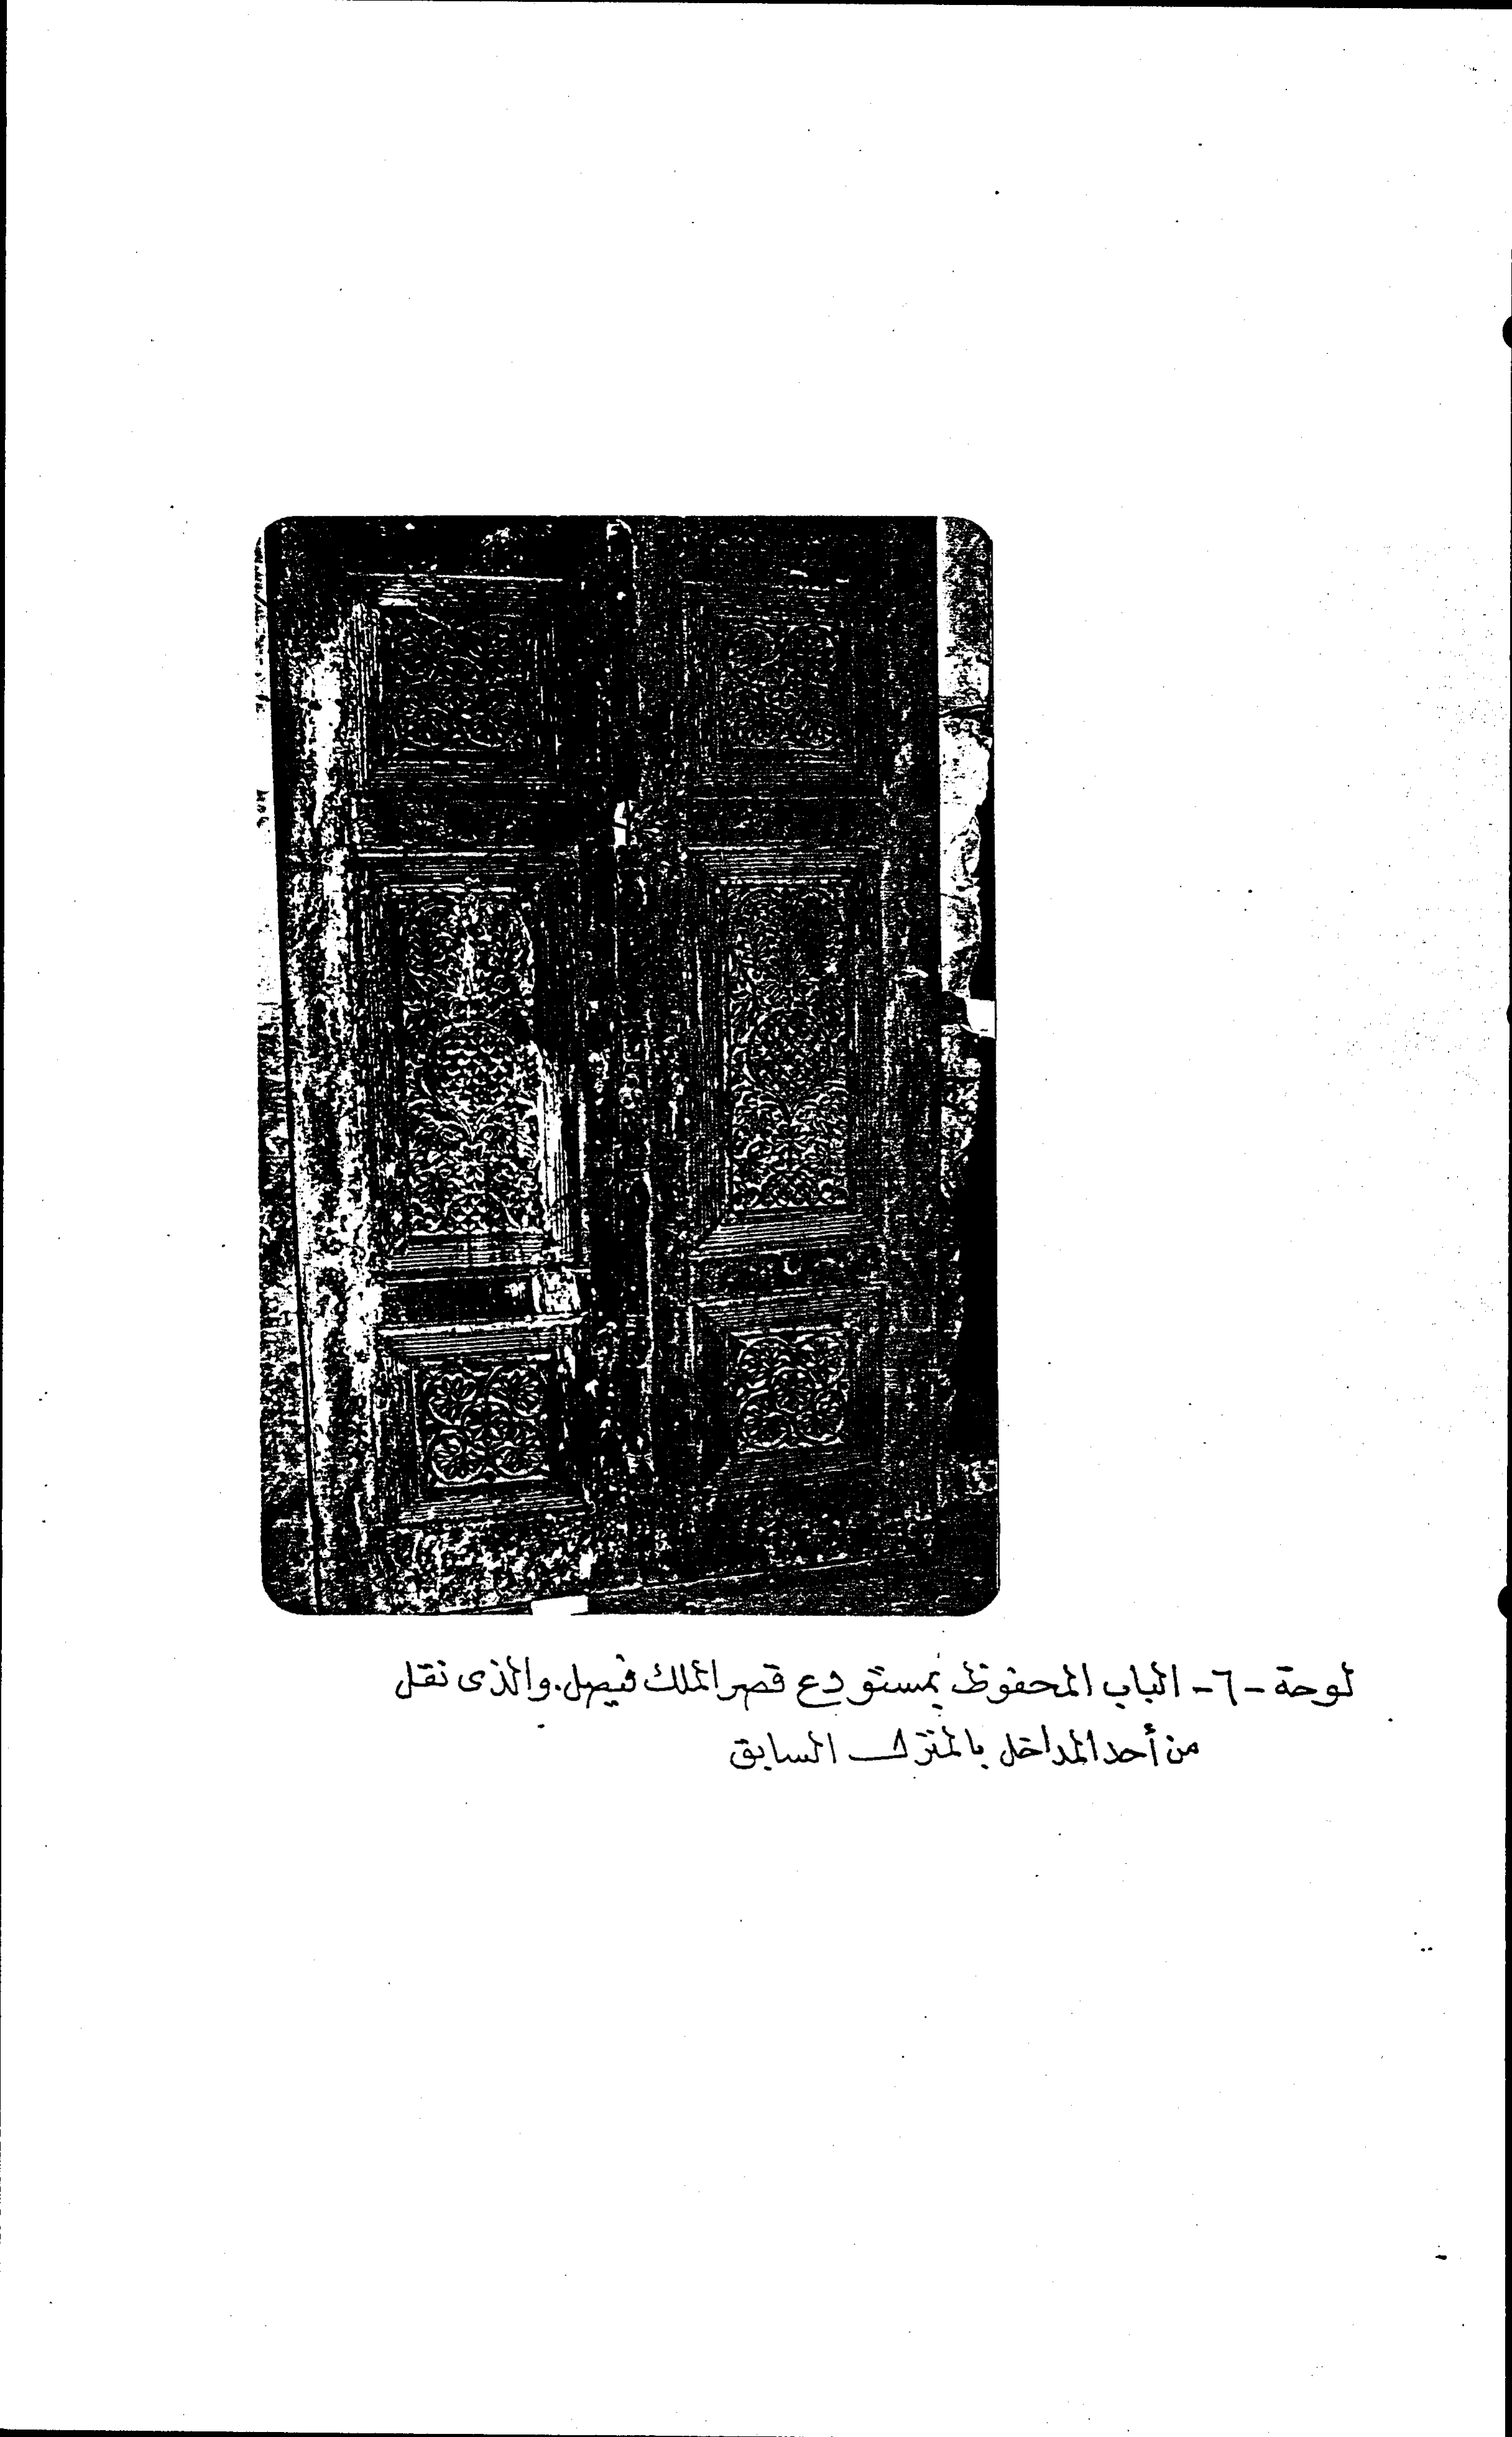 لوحة -٦- الباب المحفوظ بمستودع قصر الملك فيصل. والذى نقل
من أحد المداخل بالمنزل السابق